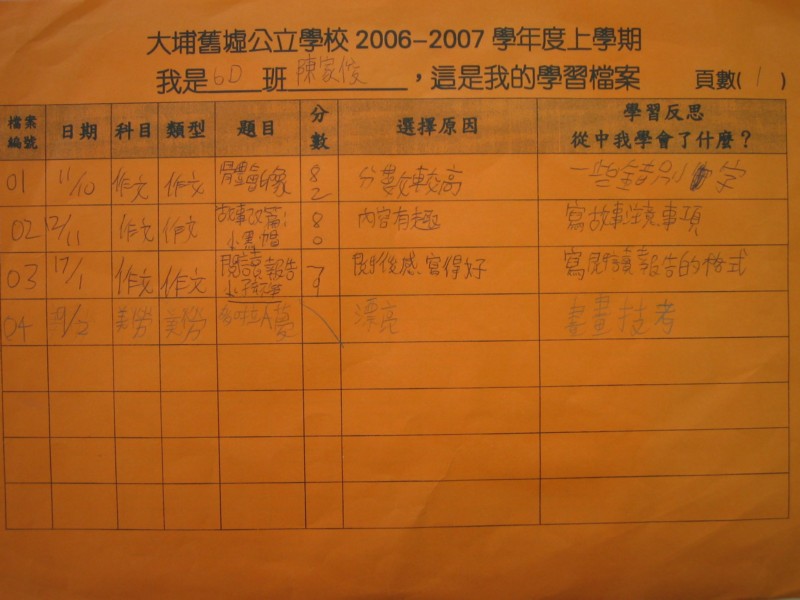 大埔舊墟公立學校 2006-2007 學年度上學期
我是 6D 班 陳家俊 ，這是我的學習檔案 頁數( 1 )
檔案編號 日期 科目 類型 題目 分數 選擇原因 學習反思 從中我學會了什麼？
01 11/10 作文 作文 82 分數較高 一些錯別字
02 12/11 作文 作文 故事改寫： 小黑帽 80 內容有趣 寫故事注意事項
03 17/1 作文 作文 閱讀報告 79 閱後感寫得好 寫閱讀報告的格式
04 美勞 美勞 漂亮